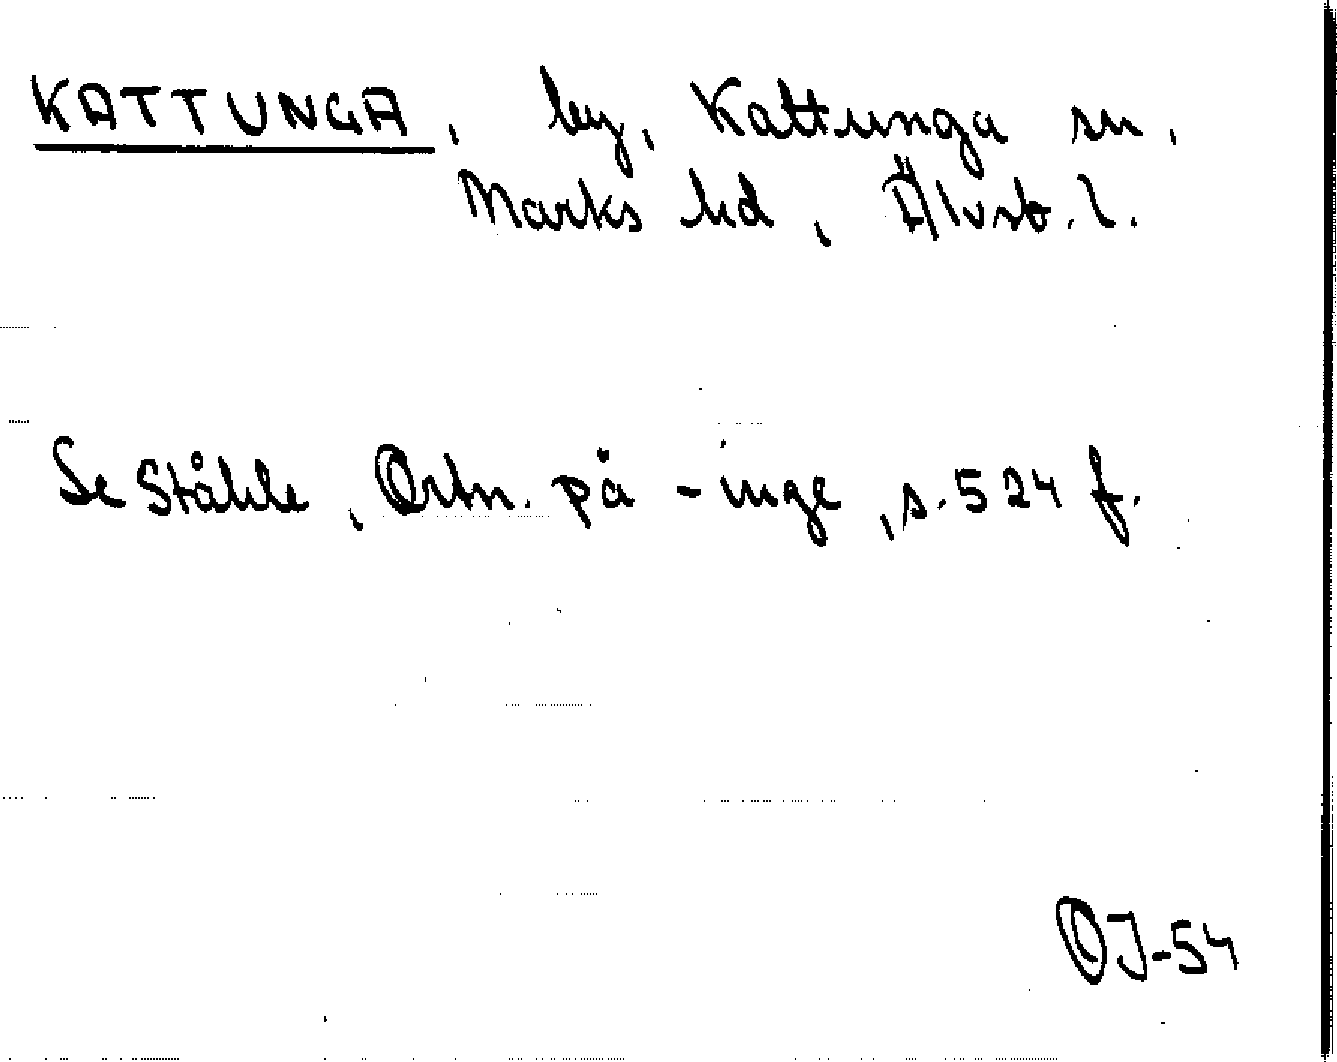 KATTUNGA, by, Kattunga sn,
Marks hd, Älvsb. l.
Se Ståhle, Ortn. på -inge, s. 524 f.
OJ-54